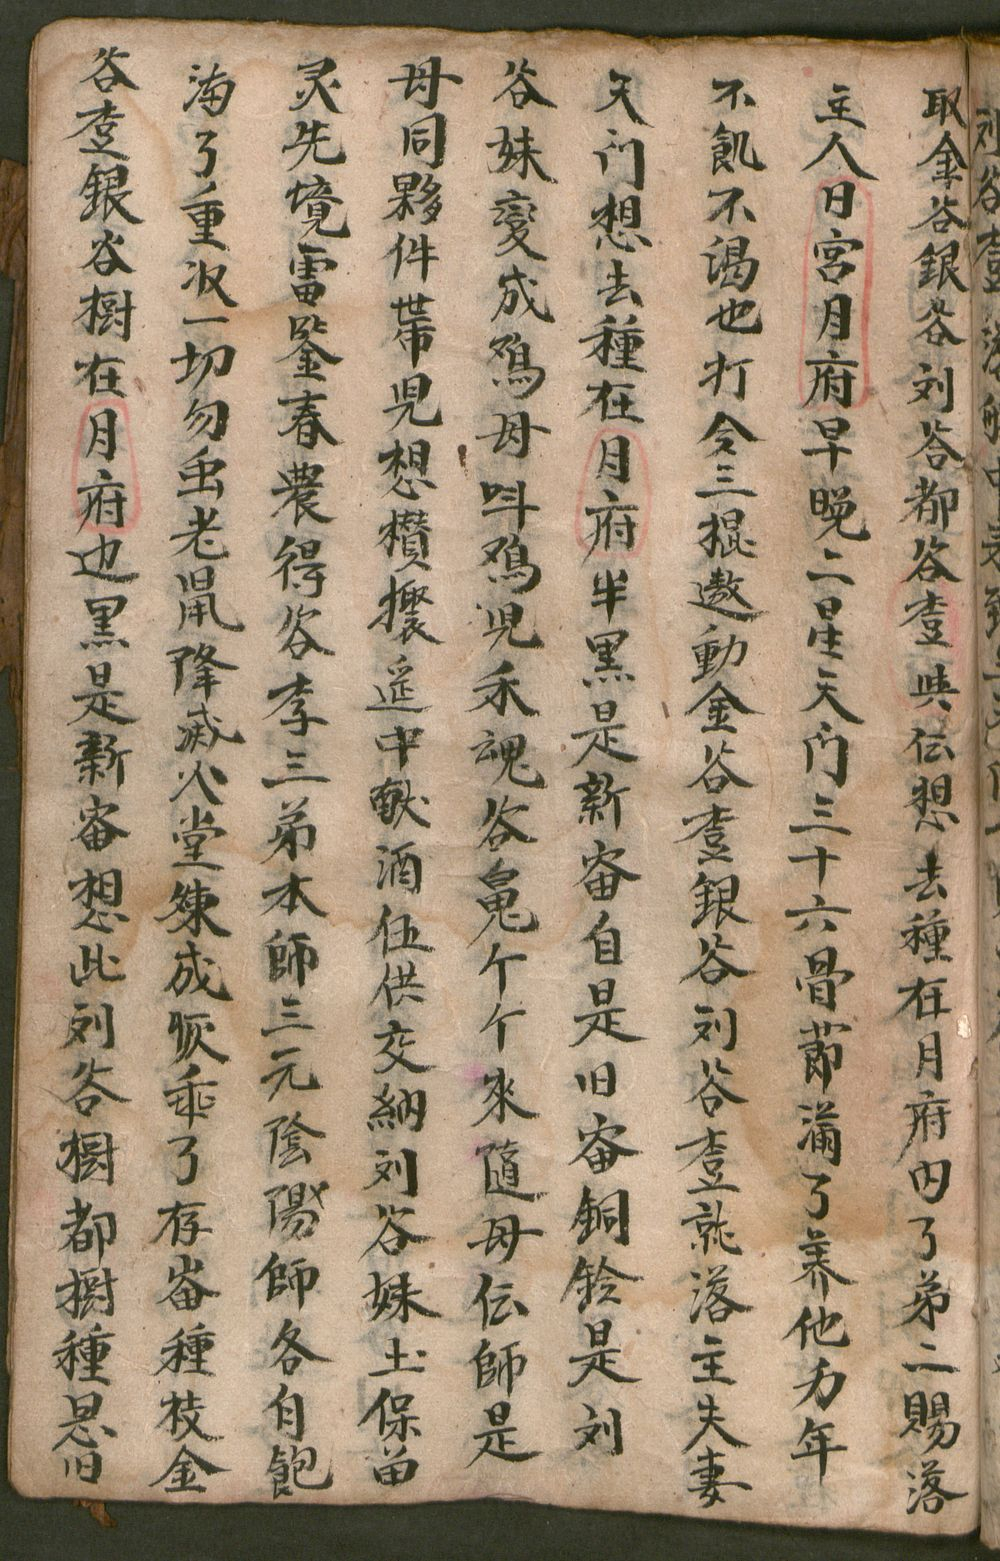 取金谷銀谷刘谷都谷壹共伝想去種在月府内了弟二賜落
主人日宮月府早晚二星天门三十六骨節滿了养他万年
不飢不渴也打令三掍遨動金谷壹銀谷刘谷壹就落主夫妻
天门想去種在月府半黑是新畨自是旧畨銅鈴是刘
谷妹变成鳮母呌鳮児禾魂谷鬼个个来隨母伝師是
母同夥件帶児想攢擾遥中献酒伍供交納刘谷妹土保苗
灵先境雷鉴春農得谷李三弟本師三元陰陽師各自飽
满了重收一切勿虫老鼠降滅火堂煉成灰乖了存畨種枝金
谷壹銀谷樹在月府边黒是新畨想此刘谷樹都樹種思旧